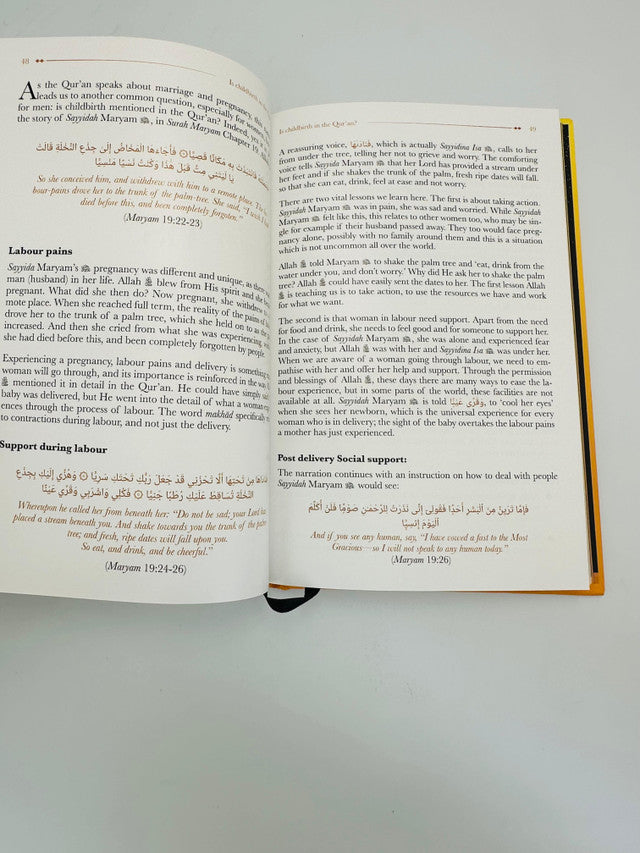 48
Is childbirth in
As the Qur'an speaks about marriage and pregnancy, this
leads us to another common question, especially for women
for men: is childbirth mentioned in the Qur'an? Indeed, yes
the story of Sayyidah Maryam, in Surah Maryam Chapter 19.
مَكَانًا قَصِيًّا ۞ فَأَجَاءَهَا الْمَخَاضُ إِلَىٰ جِذْعِ النَّخْلَةِ قَالَتْ
يَا لَيْتَنِي مِتُّ قَبْلَ هَٰذَا وَكُنْتُ نَسْيًا مَنْسِيًّا
So she conceived him, and withdrew with him to a remote place. The
bour-pains drove her to the trunk of the palm-tree. She said, "I wish I
died before this, and been completely forgotten."
(Maryam 19:22-23)
Labour pains
Sayyida Maryam's pregnancy was different and unique, as there
man (husband) in her life. Allah blew from His spirit and she
pregnant. What did she then do? Now pregnant, she withdrew
mote place. When she reached full term, the reality of the pains of
drove her to the trunk of a palm tree, which she held on to as the
increased. And then she cried from what she was experiencing,
she had died before this, and been completely forgotten by people.
Experiencing a pregnancy, labour pains and delivery is something
woman will go through, and its importance is reinforced in the way
mentioned it in detail in the Qur'an. He could have simply said
baby was delivered, but He went into the detail of what a woman
ences through the process of labour. The word makhād specifically
to contractions during labour, and not just the delivery.
Support during labour
مِن تَحْتِهَا أَلَّا تَحْزَنِي قَدْ جَعَلَ رَبُّكِ تَحْتَكِ سَرِيًّا ۞ وَهُزِّي إِلَيْكِ بِجِذْعِ
النَّخْلَةِ تُسَاقِطْ عَلَيْكِ رُطَبًا جَنِيًّا ۞ فَكُلِي وَاشْرَبِي وَقَرِّي عَيْنًا
Whereupon he called her from beneath her: "Do not be sad; your Lord has
placed a stream beneath you. And shake towards you the trunk of the palm
tree; and fresh, ripe dates will fall upon you.
So eat, and drink, and be cheerful."
(Maryam 19:24-26)
Is childbirth in the Qur'an?
49
A reassuring voice, فَنَادَىٰهَا, which is actually Sayyidina Isa, calls to her
from under the tree, telling her not to grieve or worry. The comforting
voice tells Sayyida Maryam that her Lord has provided a stream under
her feet and if she shakes the trunk of the palm, fresh ripe dates will fall.
so that she can eat, drink, feel at ease and not worry.
There are two vital lessons we learn here. The first is about taking action.
Sayyidah Maryam was in pain, she was sad and worried. While Sayyidah
Maryam felt like this, this relates to other women too, who may be sin-
gle for example if their husband passed away. They too would face preg-
nancy alone, possibly with no family around them and this is a situation
which is not uncommon all over the world.
Allah told Maryam to shake the palm tree and 'eat, drink from the
water under you, and don't worry.' Why did He ask her to shake the palm
tree? Allah could have easily sent the dates to her. The first lesson Allah
is teaching us is to take action, to use the resources we have and work
for what we want.
The second is that woman in labour need support. Apart from the need
for food and drink, she needs to feel good and for someone to support her.
In the case of Sayyidah Maryam, she was alone and experienced fear
and anxiety, but Allah was with her and Sayyidina Isa was under her.
When we are aware of a woman going through labour, we need to em-
pathise with her and offer her help and support. Through the permission
and blessings of Allah, these days there are many ways to ease the la-
bour experience, but in some parts of the world, these facilities are not
available at all. Sayyidah Maryam is told وَقَرِّي عَيْنًا, to 'cool her eyes'
when she sees her newborn, which is the universal experience for every
woman who is in delivery; the sight of the baby overtakes the labour pains
a mother has just experienced.
Post delivery Social support:
The narration continues with an instruction on how to deal with people
Sayyidah Maryam would see:
فَإِمَّا تَرَيِنَّ مِنَ ٱلْبَشَرِ أَحَدًا فَقُولِي إِنِّي نَذَرْتُ لِلرَّحْمَٰنِ صَوْمًا فَلَنْ أُكَلِّمَ
ٱلْيَوْمَ إِنسِيًّا
And if you see any human, say, "I have vowed a fast to the Most
Gracious—so I will not speak to any human today."
(Maryam 19:26)